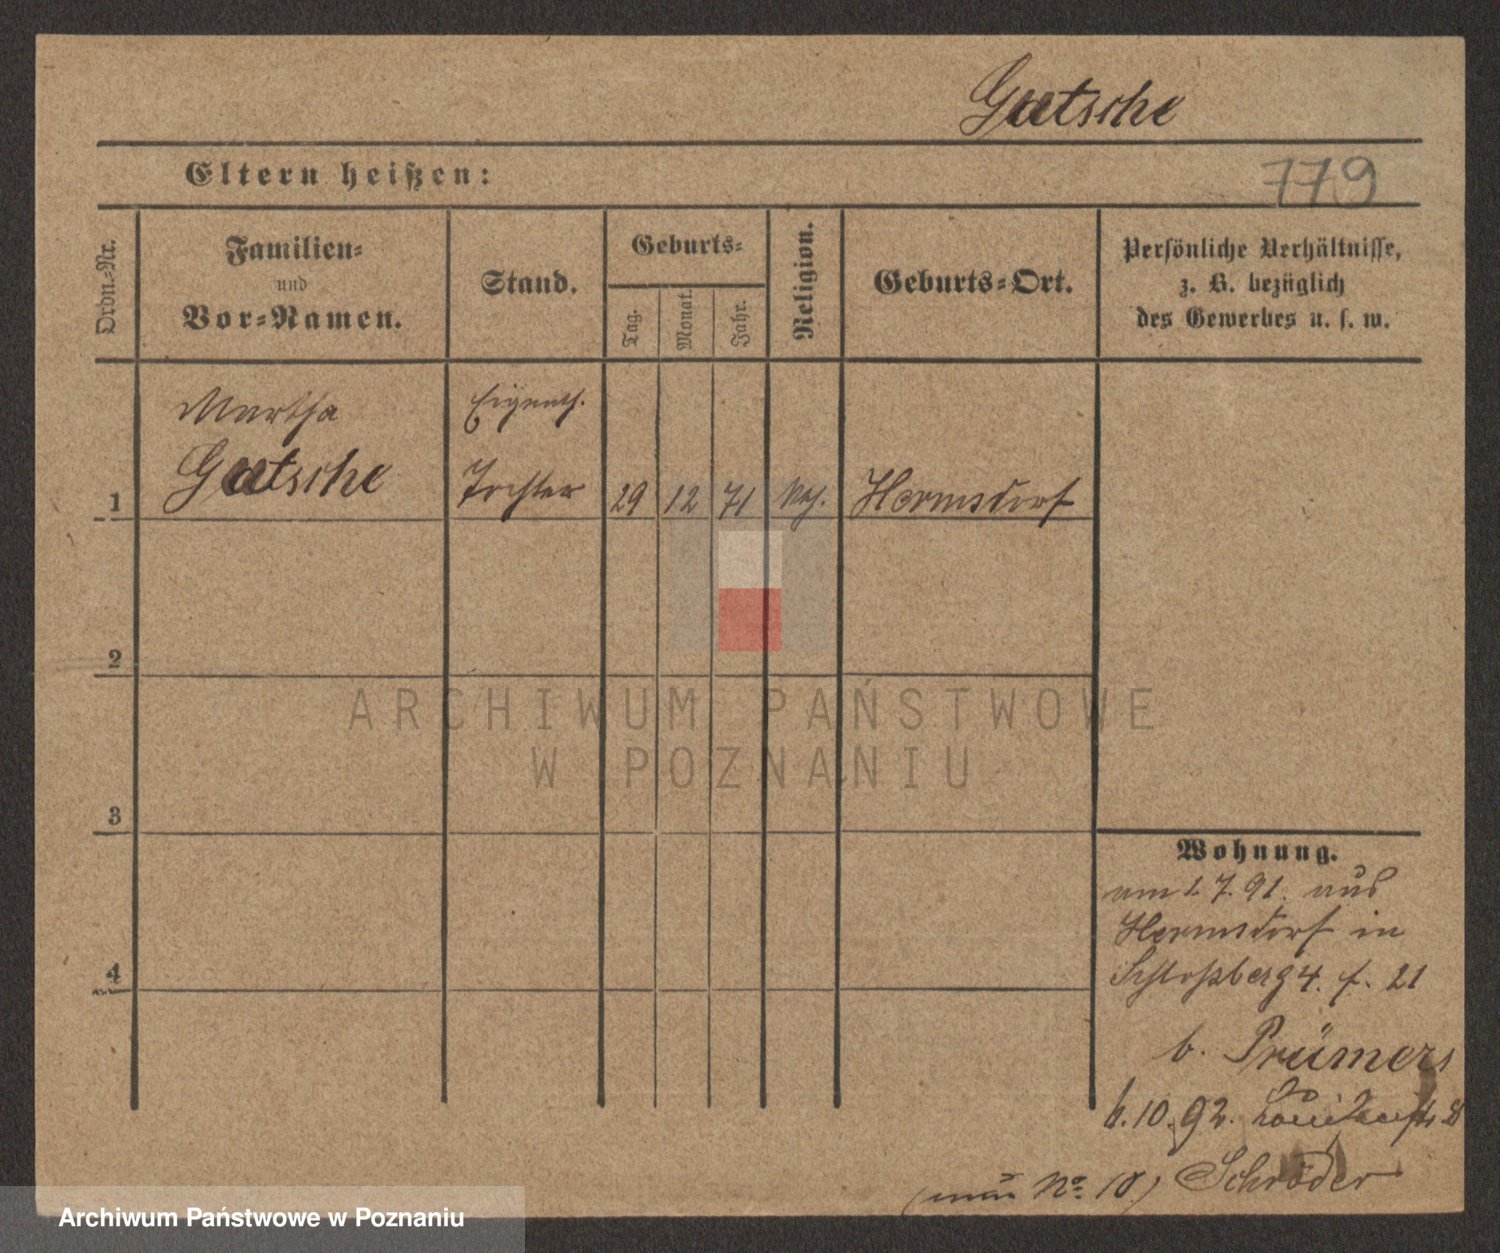 Gutsche
Eltern heißen:
779
Ordn.-Nr.
Familien-
und
Vor-Namen.
Stand.
Geburts-
Tag.
Monat.
Jahr.
Religion.
Geburts-Ort.
Persönliche Verhältnisse,
z. B. bezüglich
des Gewerbes u. s. w.
Martha
Eigenth.
1 Gutsche Tochter 29 12 71 Hermsdorf
2
3
4
ARCHIWUM PAŃSTWOWE
W POZNANIU
Wohnung.
am 1. 7. 91. aus
Hermsdorf in
Schloßberg 4. f. 21
b. Prümers
6.10.92.
(nun No. 10) Schröder
Archiwum Państwowe w Poznaniu